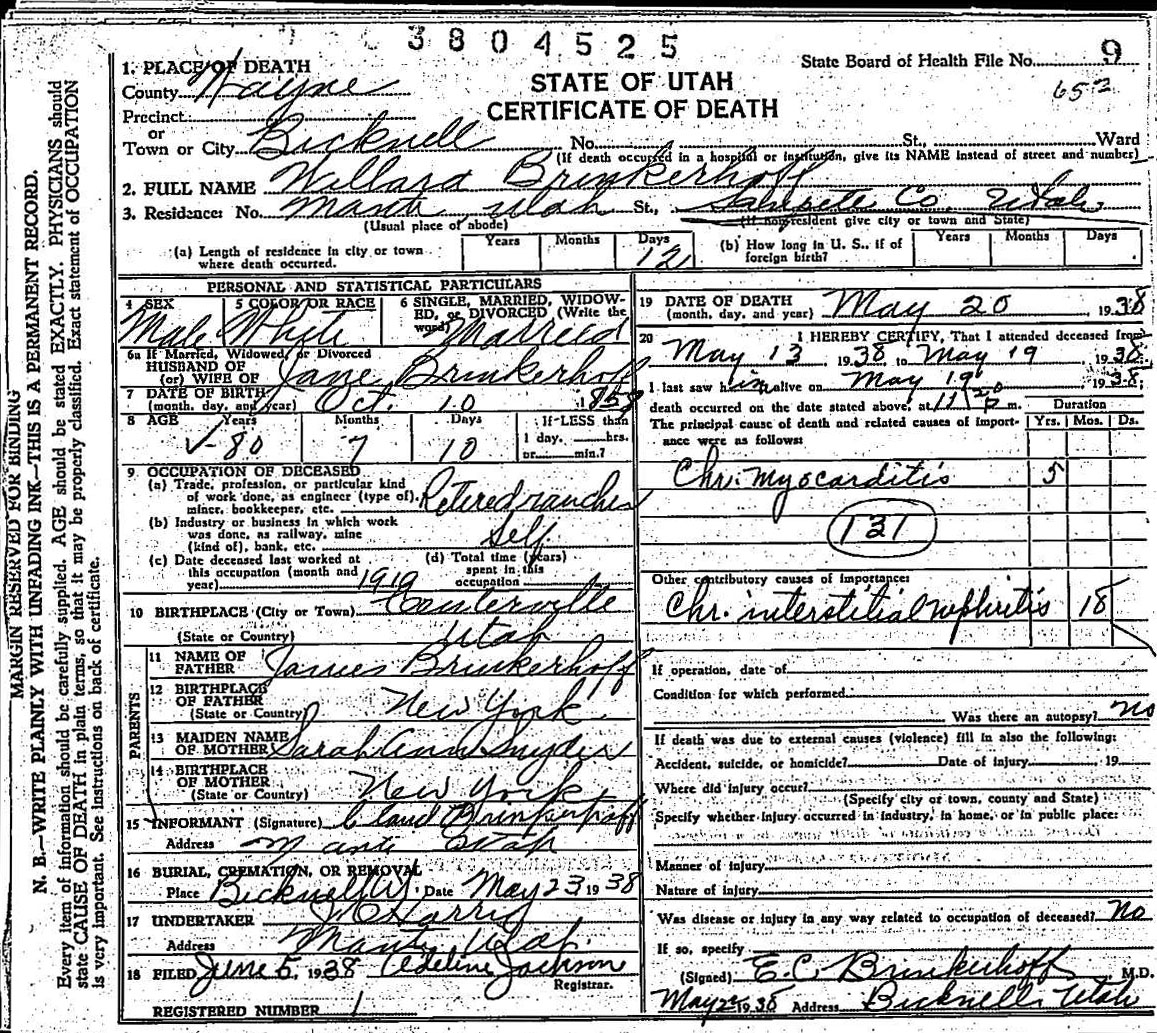 3804525
State Board of Health File No. 9
652
STATE OF UTAH
CERTIFICATE OF DEATH
MARGIN RESERVED FOR BINDING
N. B.—WRITE PLAINLY WITH UNFADING INK—THIS IS A PERMANENT RECORD.
Every item of information should be carefully supplied. AGE should be stated EXACTLY. PHYSICIANS should
state CAUSE OF DEATH in plain terms, so that it may be properly classified. Exact statement of OCCUPATION
is very important. See instructions on back of certificate.
1. PLACE OF DEATH
County Wayne
Precinct
or
Town or City Bicknell No. St., Ward
(If death occurred in a hospital or institution, give its NAME instead of street and number)
2. FULL NAME Willard Brinkerhoff
3. Residence: No. Manti, Utah St., Sanpete Co. Utah.
(Usual place of abode) (If nonresident give city or town and State)
(a) Length of residence in city or town where death occurred. Years Months Days 12
(b) How long in U. S., if of foreign birth? Years Months Days
PERSONAL AND STATISTICAL PARTICULARS
4 SEX Male
5 COLOR OR RACE White
6 SINGLE, MARRIED, WIDOWED, or DIVORCED (Write the word) Married
6a If Married, Widowed, or Divorced
HUSBAND OF
(or) WIFE OF Jane Brinkerhoff
7 DATE OF BIRTH
(month, day, and year) Oct. 10 1858
8 AGE Years 80 Months 7 Days 10
If LESS than
1 day, hrs.
or min.?
9 OCCUPATION OF DECEASED
(a) Trade, profession, or particular kind
of work done, as engineer (type of),
miner, bookkeeper, etc. Retired rancher
(b) Industry or business in which work
was done, as railway, mine
(kind of), bank, etc. Self.
(c) Date deceased last worked at
this occupation (month and
year) 1919
(d) Total time (years)
spent in this
occupation
10 BIRTHPLACE (City or Town) Centerville
(State or Country) Utah
PARENTS
11 NAME OF
FATHER James Brinkerhoff
12 BIRTHPLACE
OF FATHER
(State or Country) New York
13 MAIDEN NAME
OF MOTHER Sarah Ann Snyder
14 BIRTHPLACE
OF MOTHER
(State or Country) New York
15 INFORMANT (Signature) Claud Brinkerhoff
Address Manti Utah
16 BURIAL, CREMATION, OR REMOVAL
Place Bicknell U. Date May 23 1938
17 UNDERTAKER Harris
Address Manti Utah.
18 FILED June 5, 1938 Adeline Jackson
Registrar.
REGISTERED NUMBER 1
19 DATE OF DEATH
(month, day, and year) May 20 1938
20 I HEREBY CERTIFY, That I attended deceased from
May 13 1938 to May 19, 1938
I last saw him alive on May 19 1938
death occurred on the date stated above, at 11 20 p m.
The principal cause of death and related causes of importance were as follows: Duration
Yrs. Mos. Ds.
Chr. myocarditis 5
131
Other contributory causes of importance:
Chr. interstitial nephritis 18
If operation, date of
Condition for which performed
Was there an autopsy? No
If death was due to external causes (violence) fill in also the following:
Accident, suicide, or homicide? Date of injury 19
Where did injury occur?
(Specify city or town, county and State)
Specify whether injury occurred in industry, in home, or in public place:
Manner of injury
Nature of injury
Was disease or injury in any way related to occupation of deceased? No
If so, specify
(Signed) E.C. Brinkerhoff M.D.
May 1938 Address Bicknell, Utah